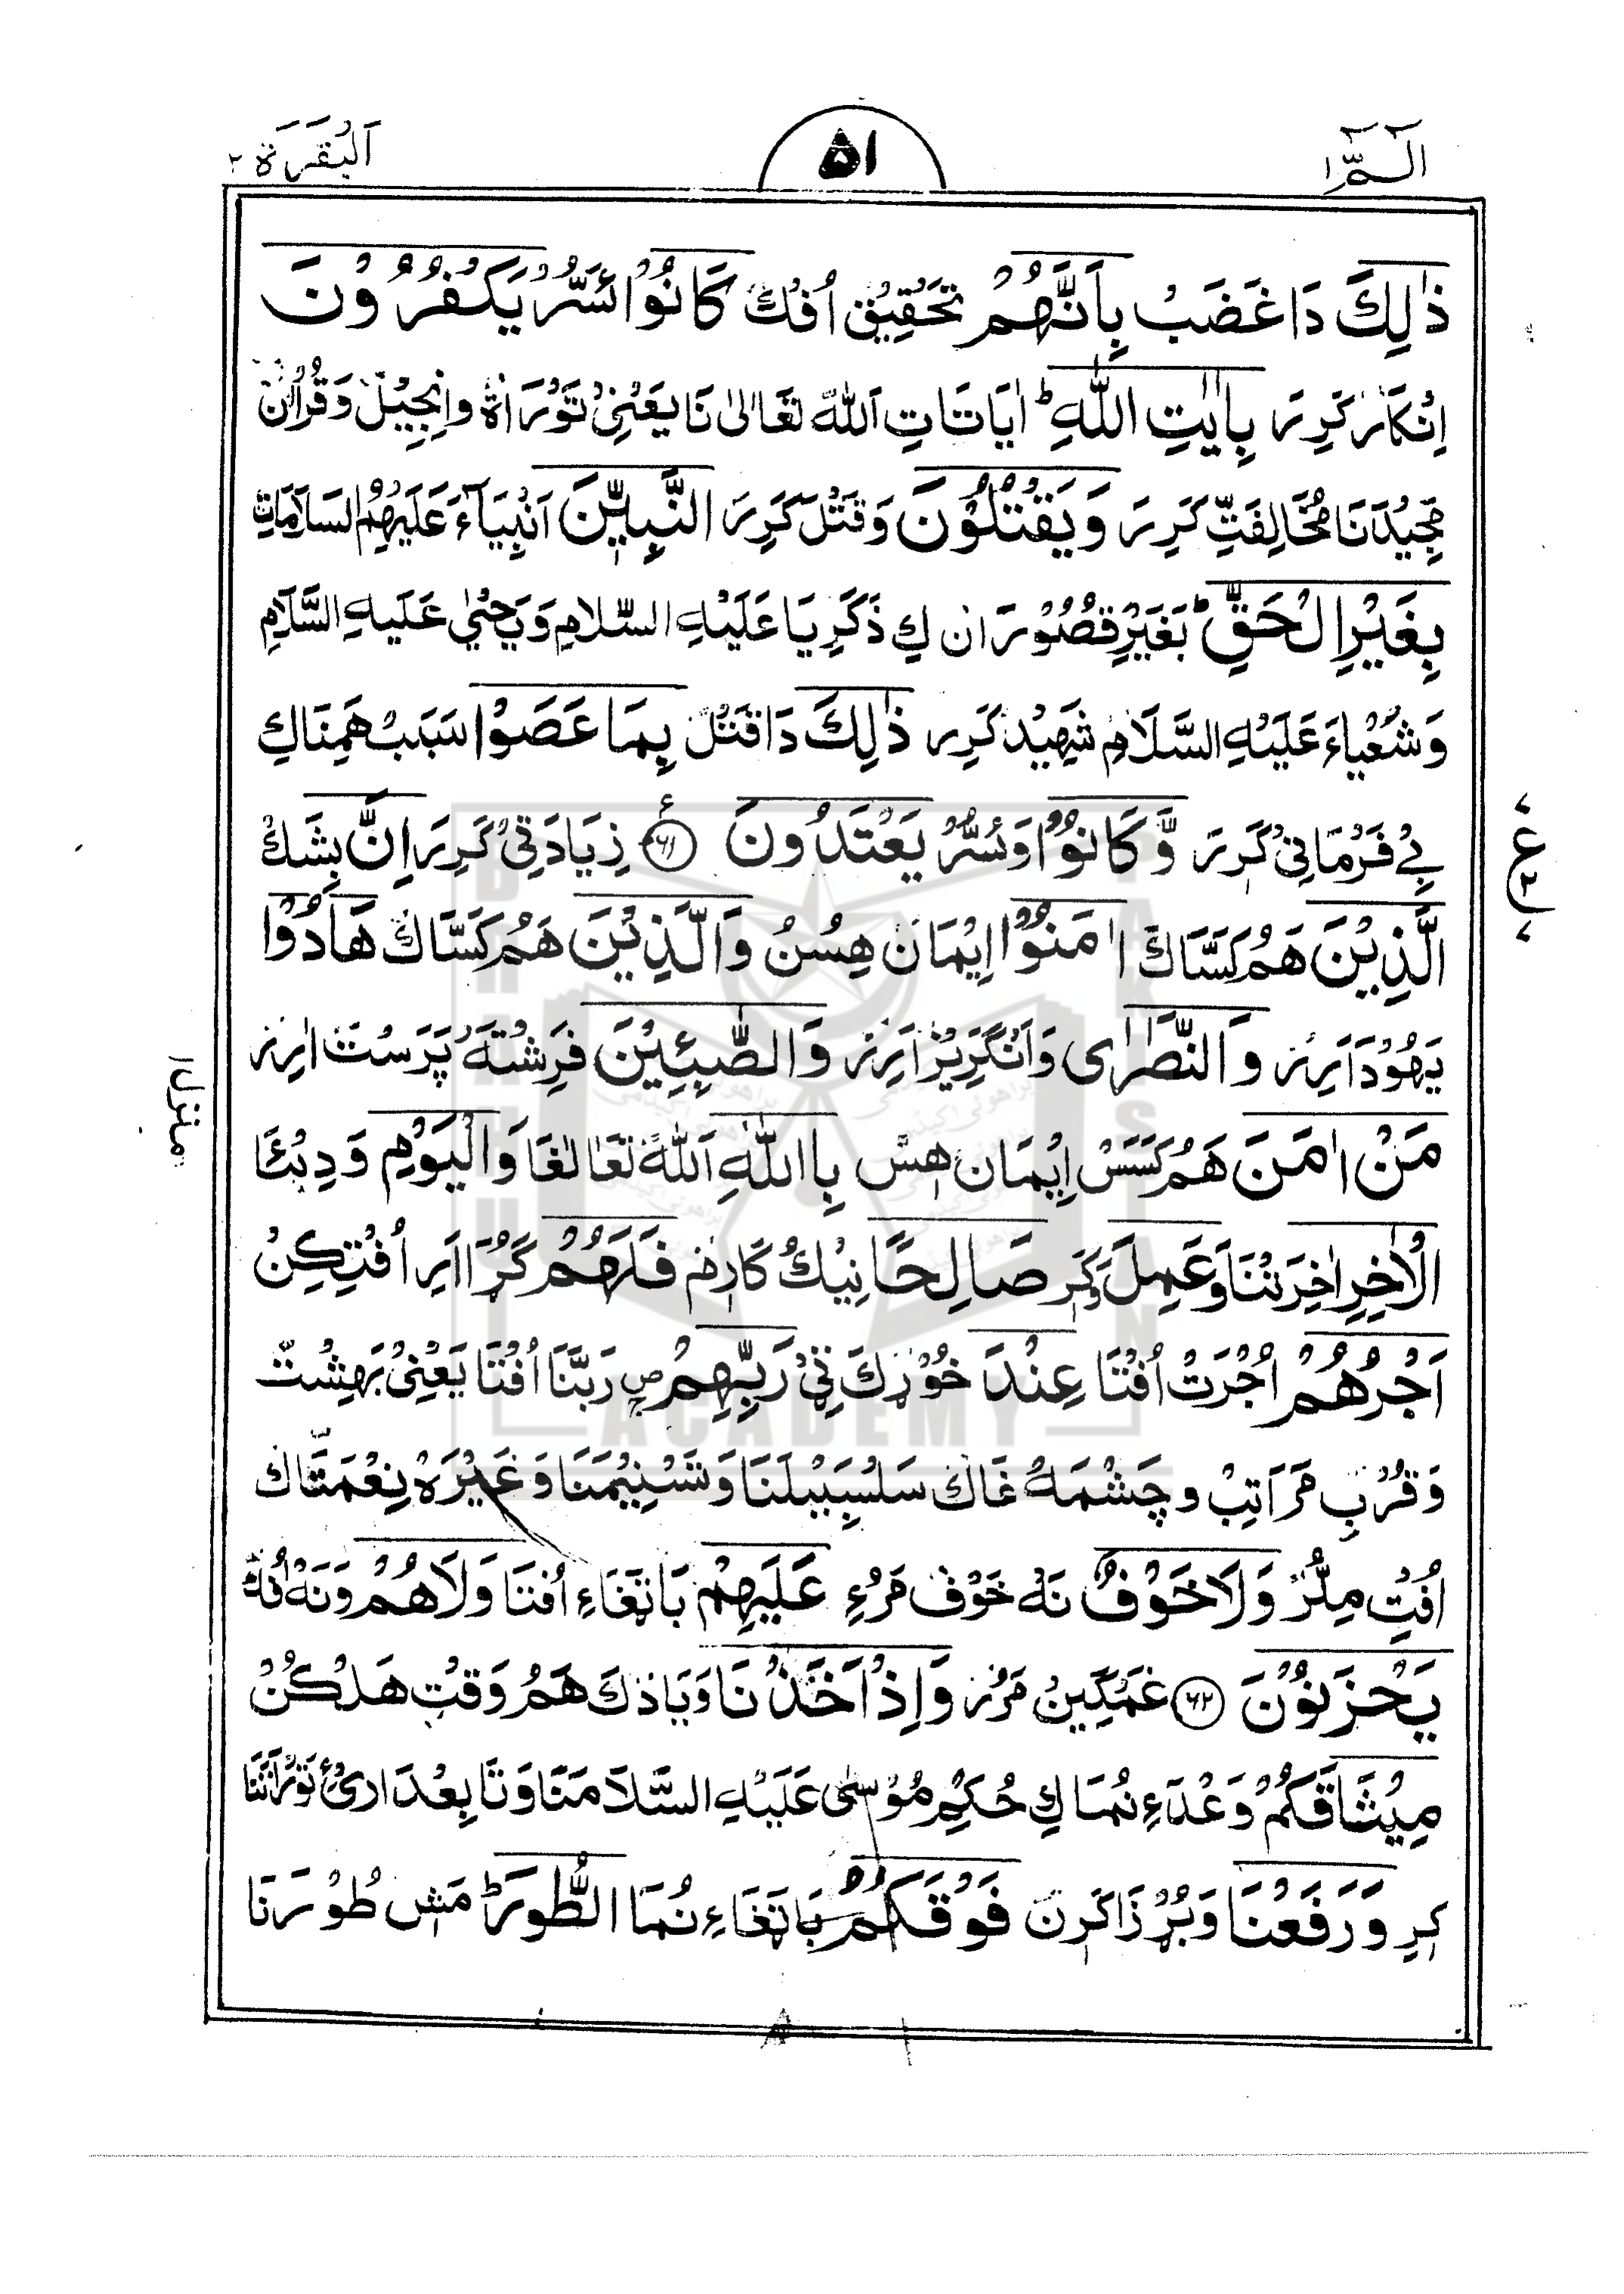 الٓمّٓ ١
۵۱
اَلْبَقَرَة ٢
ذٰلِكَ دَا غَضَبْ بِاَنَّهُمْ تَحْقِيْق اُفْكْ كَانُوْا سَّرْ يَكْفُرُوْنَ
اِنْكَارْ كَرِيَر بِاٰيٰتِ اللّٰهِ ؕ اٰيَاتَاتِ اَللّٰهُ تَعَالٰى نَا يَعْنِىْ تَوْرَاةْ وانْجِيْلْ وَ قُرْاٰنْ
مَجِيْدَنَا مُخَالِفَتِّ كَرِيَر وَيَقْتُلُوْنَ وَ قَتْلْ كَرِيَر النَّبِيّٖنَ اَنْبِيَآءَ عَلَيْهِمُ السَلَامَاتِ
بِغَيْرِ الْحَقِّ ؕ بَغَيْرِ قُصُوْرَان كِ ذَكَرِيَا عَلَيْهِ السَّلَامِ وَ يَحْيٰى عَلَيْهِ السَّلَامِ
وَشَعْيَاءَ عَلَيْهِ السَّلَامِ شَهِيْد كَرِيَر ذٰلِكَ دَا قَتْلْ بِمَا عَصَوْا سَبَبْ هَمِنَاكِ
بِے فَرْمَانِىْ كَرِيَر وَّكَانُوْا وَسُّرْ يَعْتَدُوْنَ ﴿٦١﴾ ع زِيَادَتِىْ كَرِيَر اِنَّ بِشَكْ
الَّذِيْنَ هَمُ كَسَّاكْ اٰمَنُوْا اِيْمَانْ هِسُنْ وَالَّذِيْنَ هَمُ كَسَّاكْ هَادُوْا
يَهُوْدَ اَرِيْر وَالنَّصٰرٰى وَ اَنْگَرِيْز اَرِيْر وَالصّٰبِئِيْنَ فَرِشْتَهْ پَرَسْتْ اَرِيْر
مَنْ اٰمَنَ هَمُ كَسَسْ اِيْمَان هِسْ بِااللّٰهِ اَللّٰهُ تَعَالٰى غَا وَالْيَوْمِ وَ دِئِنَّا
الْاٰخِرِ اٰخِرَتْنَا وَعَمِلَ وَكَرِ صَالِحًا نِيْكْ كَارِمْ فَلَهُمْ گُڑَا اَرِ اُفْتِكِنْ
اَجْرُهُمْ اُجْرَتْ اُفْتَا عِنْدَ خُوْڑكَ ٹِىْ رَبِّهِمْ ص رَبَّنَا اُفْتَا يَعْنِىْ بَهِشْتْ
وَ قُرْبِ مَرَاتِبْ و چَشْمَهْ غَاكْ سَلْسَبِيْلَنَا وَ تَسْنِيْمَنَا وَ غَيْرَهْ نِعْمَتَّاكْ
اُفْتِ مِلُّرْ وَلَا خَوْفٌ نَهْ خَوْف مَرُءِ عَلَيْهِمْ بَاتْغَاءِ اُفْتَا وَلَا هُمْ وَ نَهْ اُفْكْ
يَحْزَنُوْنَ ﴿٦٢﴾ غَمْگِيْنْ مَرُر وَاِذْ اَخَذْنَا وَ يَاد كَ هَمُ وَقْتِ هَلْكُنْ
مِيْثَاقَكُمْ وَعْدَءِ نُمَا كِ حُكْمِ مُوْسٰى عَلَيْهِ السَّلَامَنَا وَتَا بِعْدَارِىْ تَوْرَاتَنَا
كِرِ وَرَفَعْنَا وَ بُرْزَا كَرِن فَوْقَكُمْ بَاتْغَاءِ نُمَا الطُّوْرَ ؕ مَشِ طُوْرَنَا
ع
٢
منزل ١
BRAHUI
PAKISTAN
ACADEMY